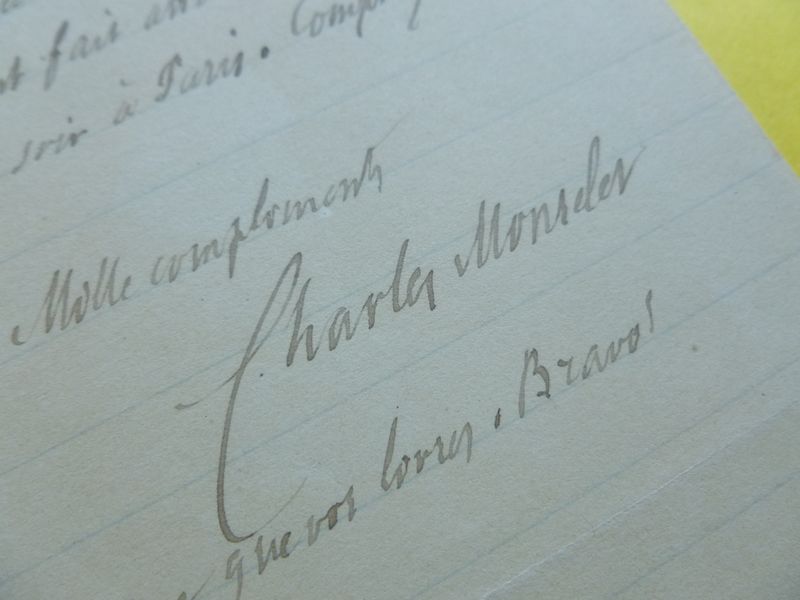 fait
soir à Paris.
Mille compliments
Charles Monselet
que vos livres. Bravo!